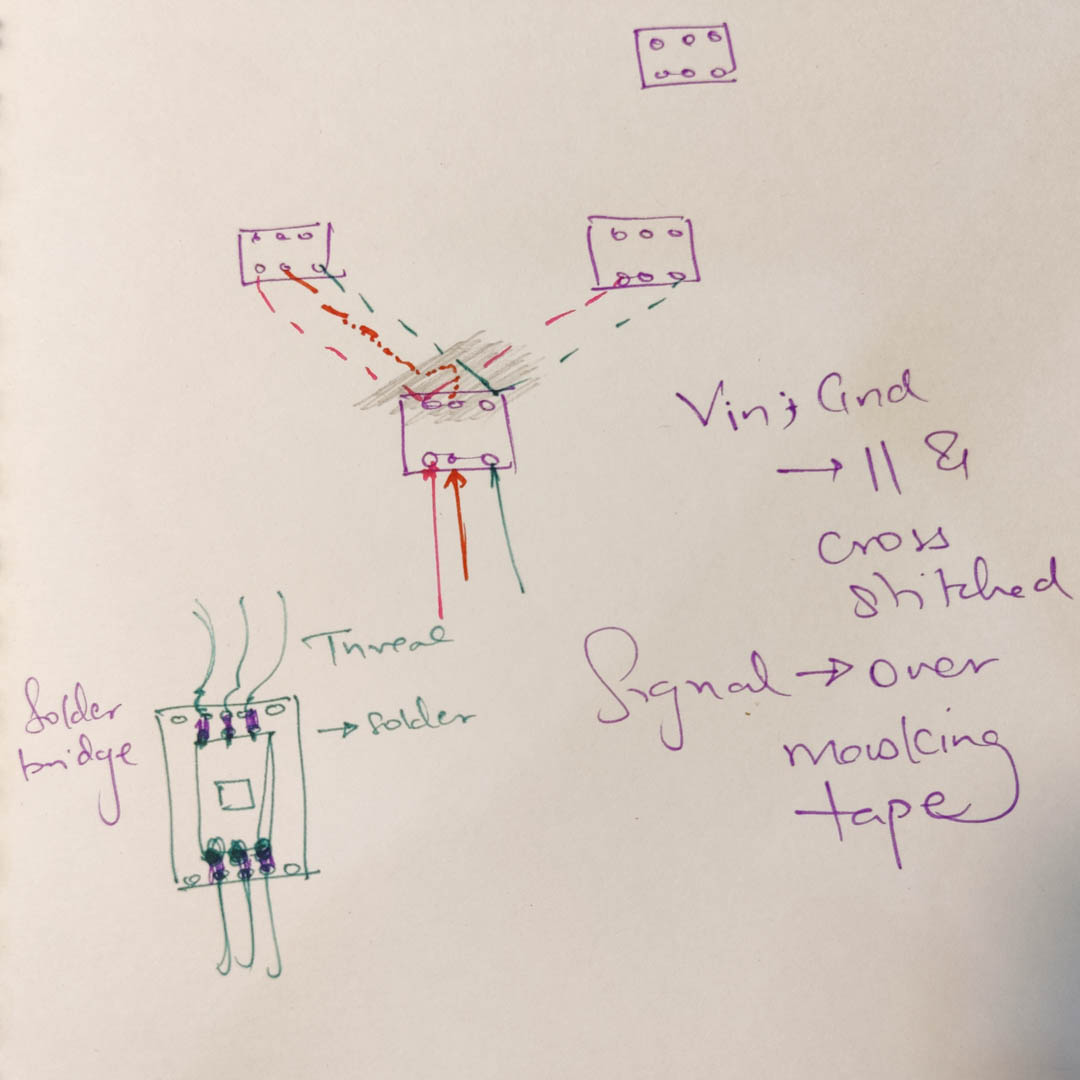 Vin; Gnd
→ || &
cross
stitched
Signal → over
masking
tape
Thread
→ solder
Solder
bridge